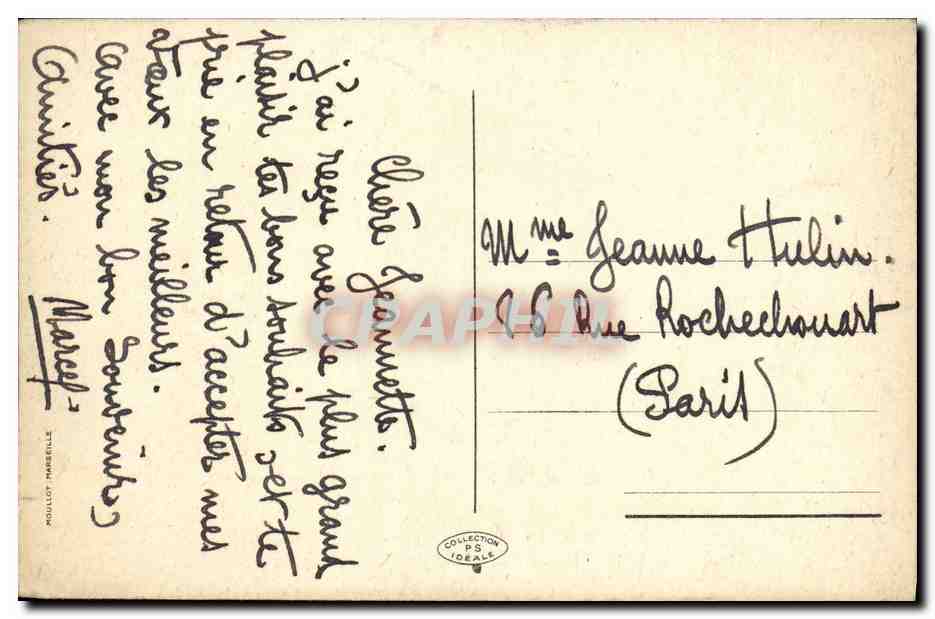 Chère Jeannette.
j'ai reçu avec le plus grand
plaisir tes bons souhaits et te
prie en retour d'accepter mes
vœux les meilleurs.
avec mon bon Souvenir,
Amitiés.
Marcel
Mme Jeanne Hulin.
Rue Rochechouart
(Paris)
MOULLOT. MARSEILLE
COLLECTION
PS
IDÉALE
CPAPHIL